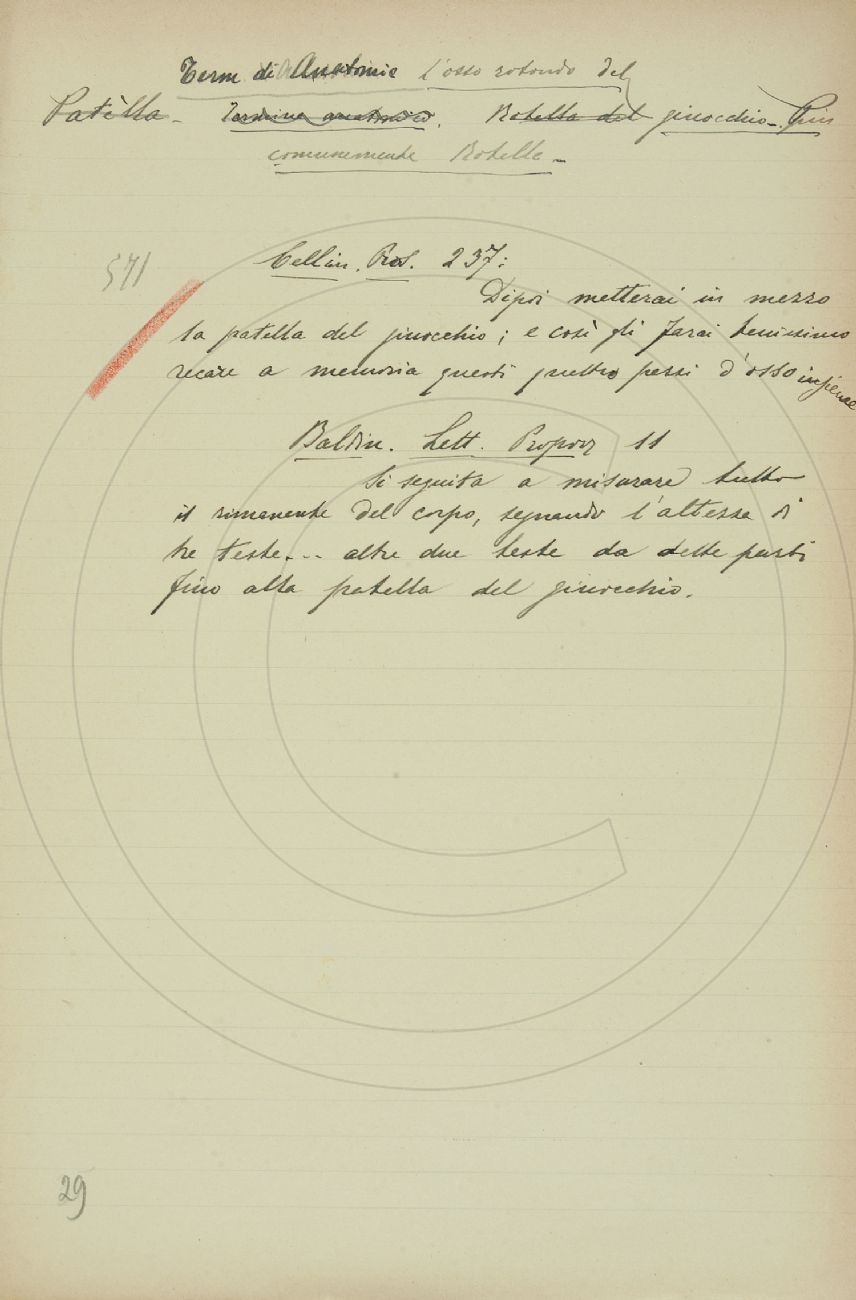 Term di Anatomia l'osso rotondo del
Patèlla - Termine anatomico. Rotella del ginocchio -. Più
comunemente Rotella -
571
Cellin. Pros. 237:
Dipoi metterai in mezzo
la patella del ginocchio; e così gli farai benissimo
recare a memoria questi quattro pezzi d'osso insieme
Baldin. Lett. Proporz 11
Si seguita a misurare tutto
il rimanente del corpo, segnando l'altezza di
tre teste... altre due teste da dette parti
fino alla patella del ginocchio.
29